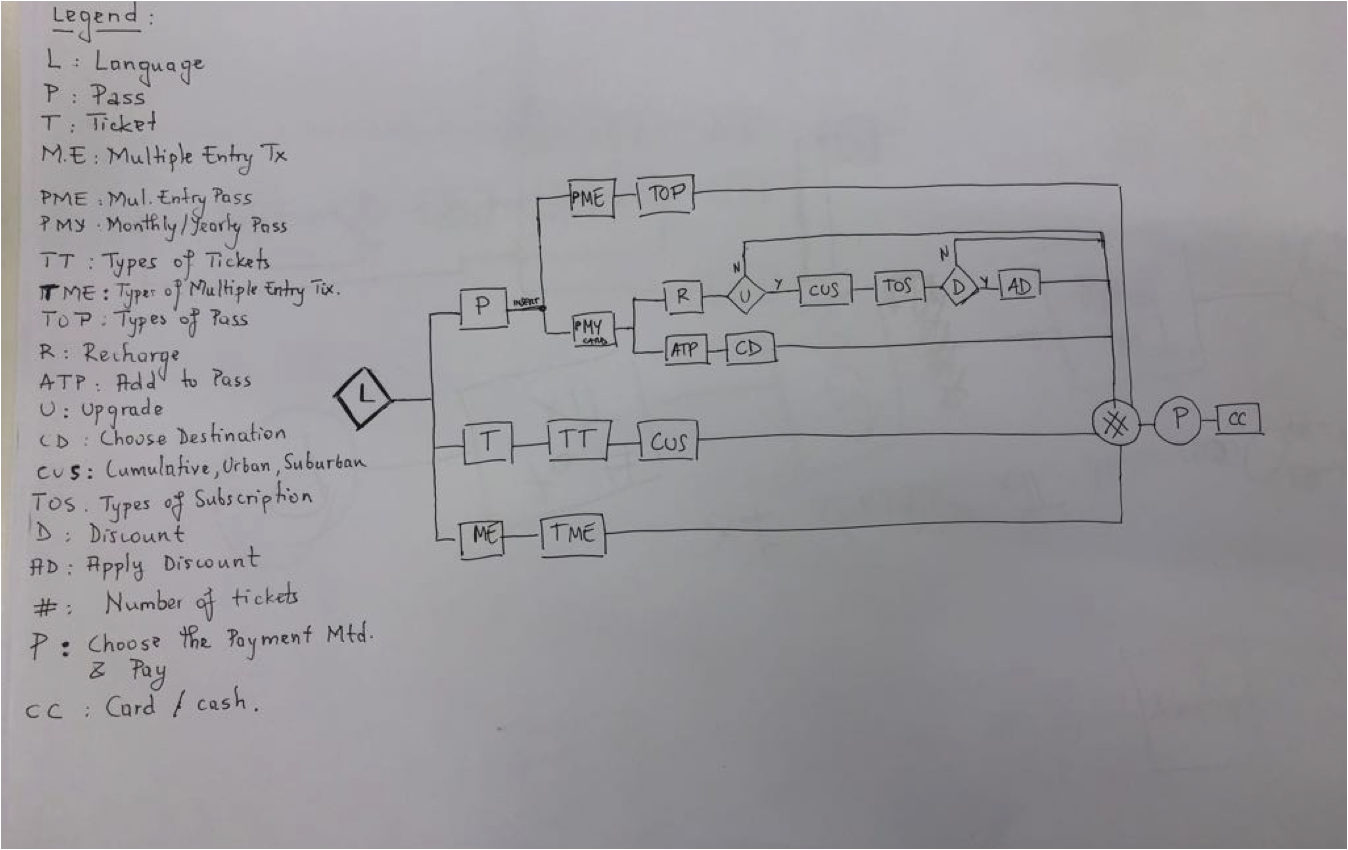 Legend :
L : Language
P : Pass
T : Ticket
M.E : Multiple Entry Tx
PME : Mul. Entry Pass
PMY . Monthly/Yearly Pass
TT : Types of Tickets
TME : Types of Multiple Entry Tix.
TOP : Types of Pass
R : Recharge
ATP : Add to Pass
U : Upgrade
CD : Choose Destination
CUS : Cumulative, Urban, Suburban
TOS . Types of Subscription
D : Discount
AD : Apply Discount
# : Number of tickets
P : Choose the Payment Mtd.
& Pay
CC : Card / cash.
PME TOP
N N
R U Y CUS TOS D Y AD
P INSERT
PMY
CARD
ATP CD
L
T TT CUS
# P CC
ME TME